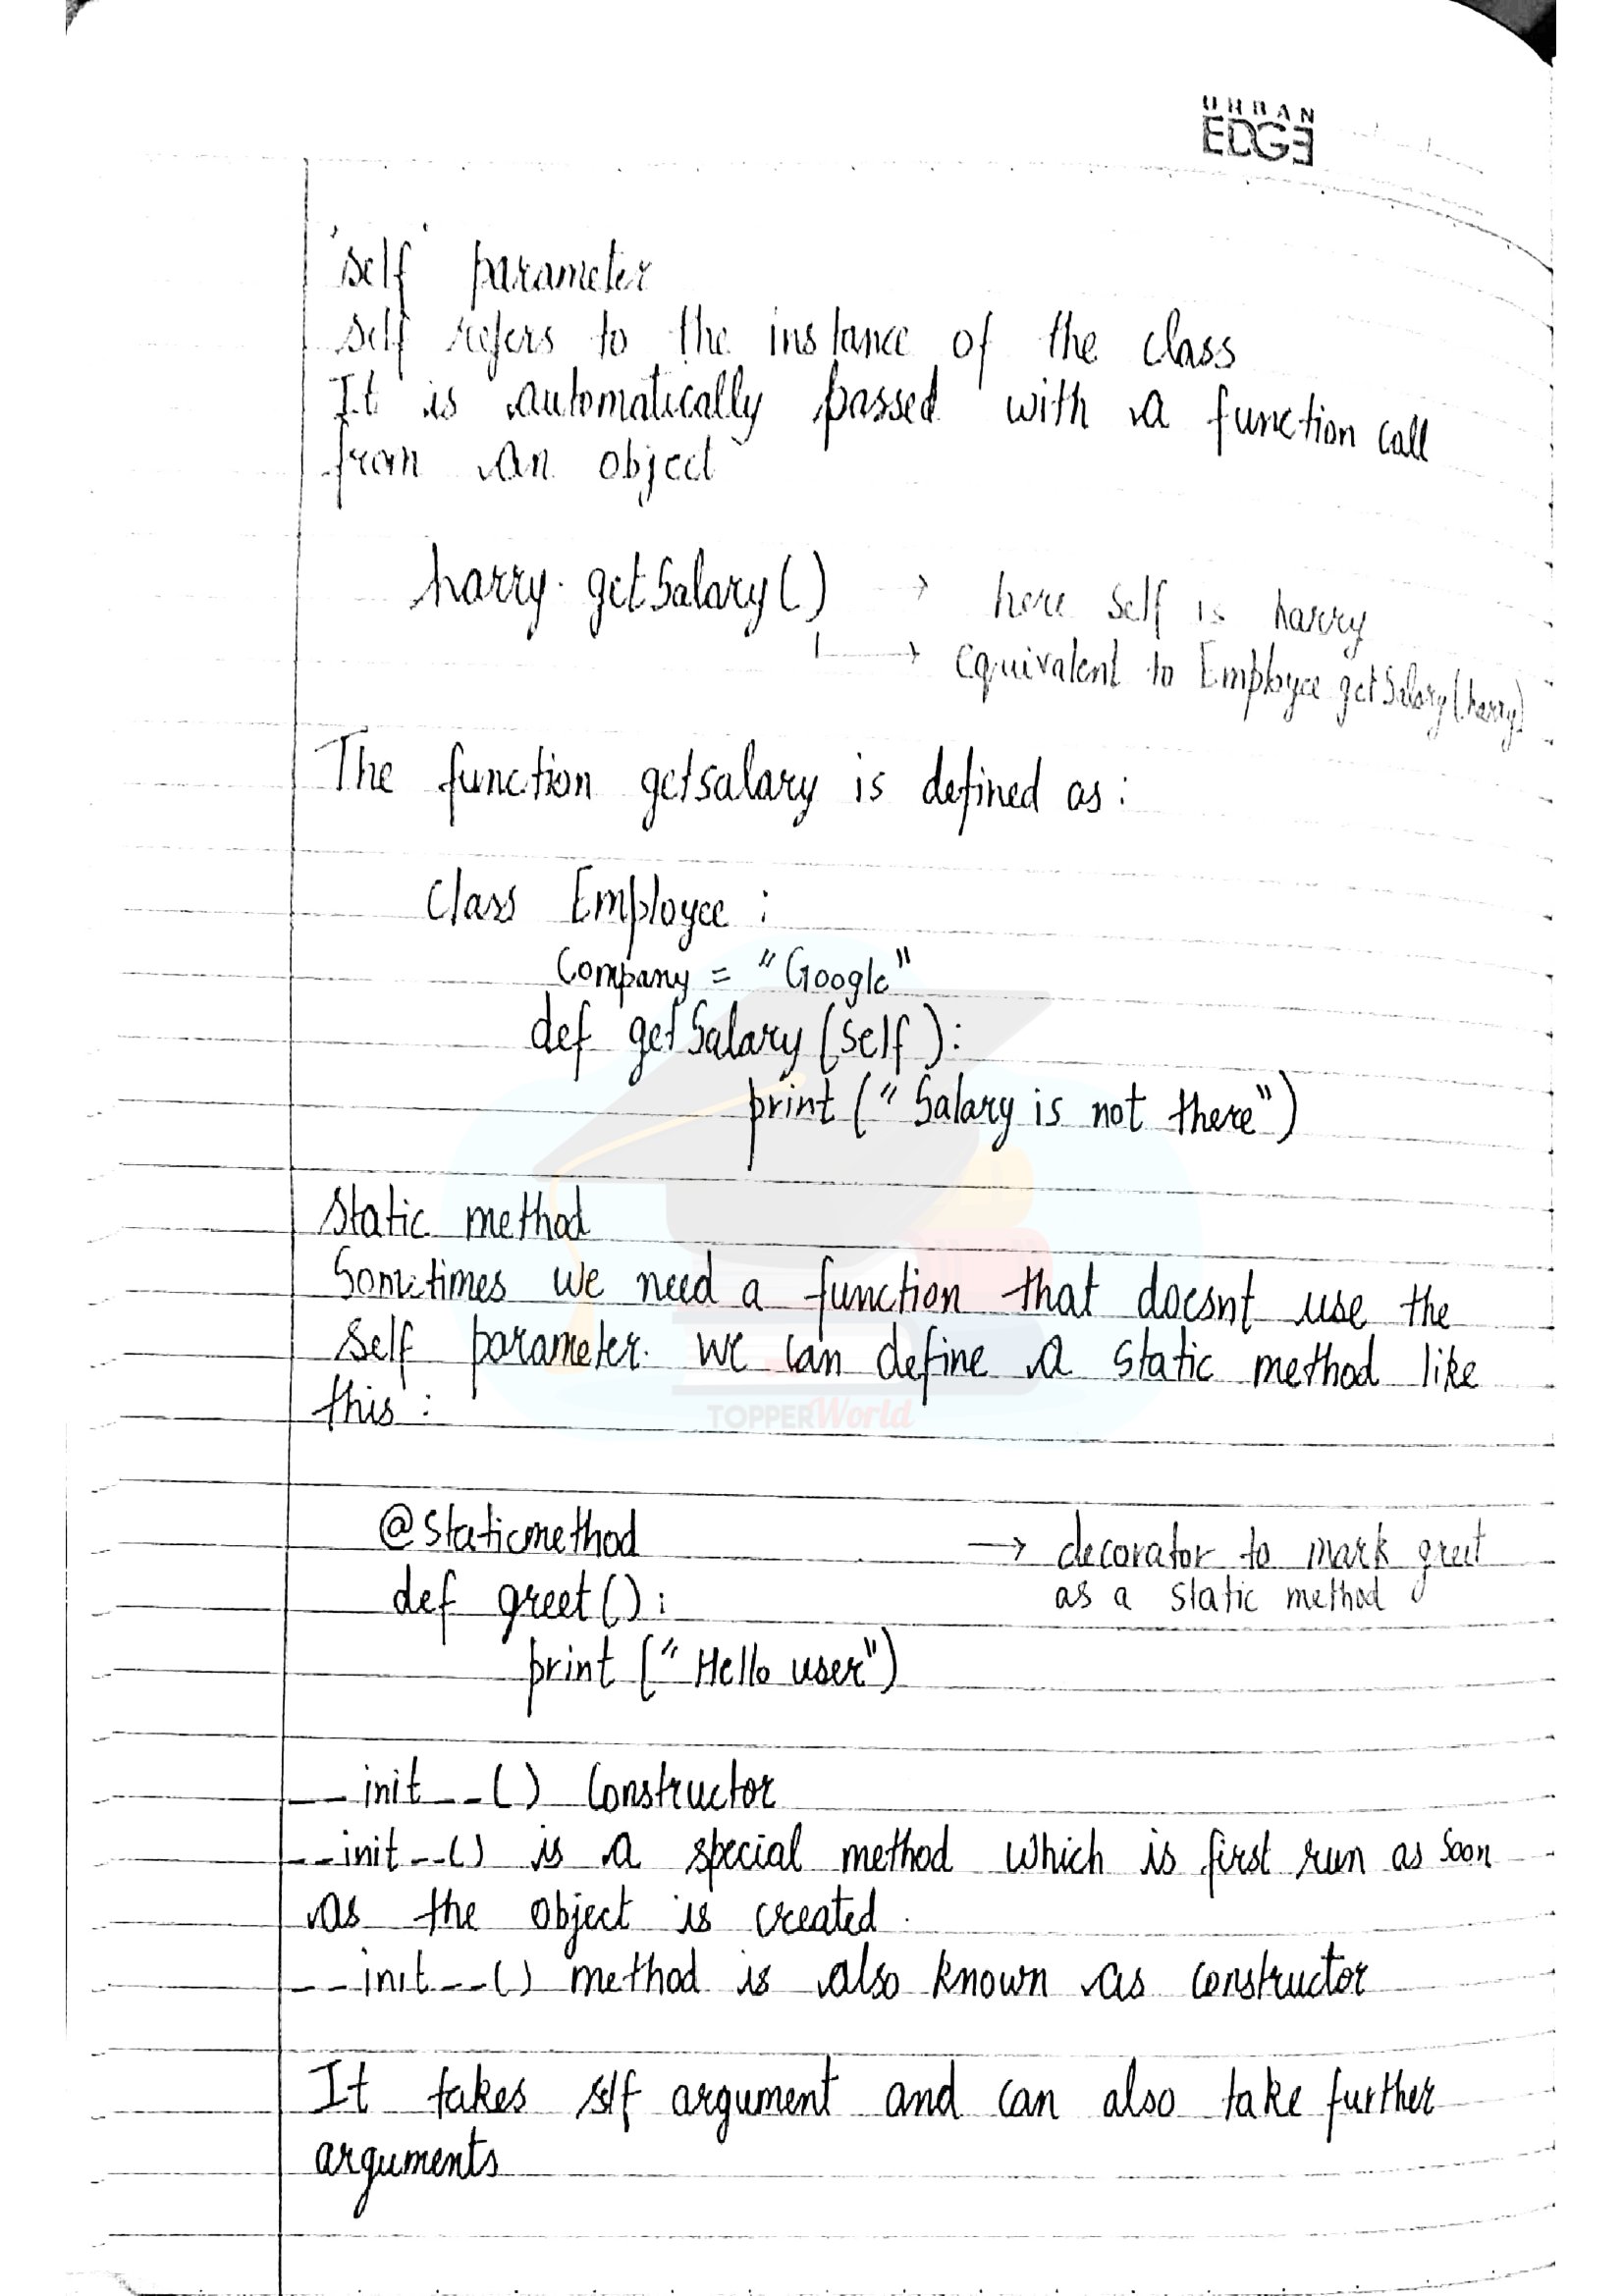 URBAN
EDGE
'self' parameter
self refers to the instance of the class
It is automatically passed with a function call
from an object
harry.getSalary() → here self is harry
→ equivalent to Employee.getSalary(harry)
The function getsalary is defined as:
class Employee:
Company = "Google"
def getSalary(self):
print("Salary is not there")
Static method
Sometimes we need a function that doesnt use the
self parameter. we can define a static method like
this:
TOPPERWorld
@staticmethod → decorator to mark greet
as a static method
def greet():
print("Hello user")
__init__() Constructor
__init__() is a special method which is first run as soon
as the object is created.
__init__() method is also known as constructor
It takes self argument and can also take further
arguments